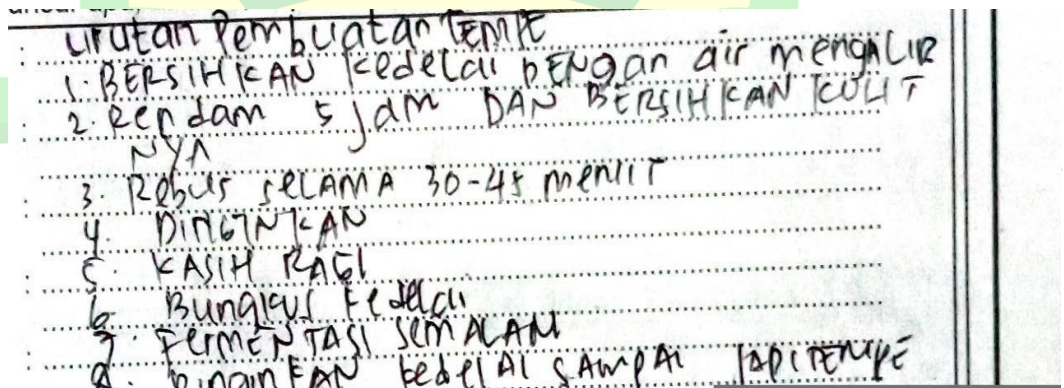 urutan Pembuatan TEMPE
1. BERSIHKAN kedelai DENgan air mengALIR
2. Rendam 5 jam DAN BERSIHKAN KULIT
NYA
3. Rebus selAMA 30-45 menIT
4. DINGINKAN
5. KASIH RAGI
6. Bungkus kedelai
7. FERMENTASI SEMALAM
8. DinginKAN kedelAI SAMPAI